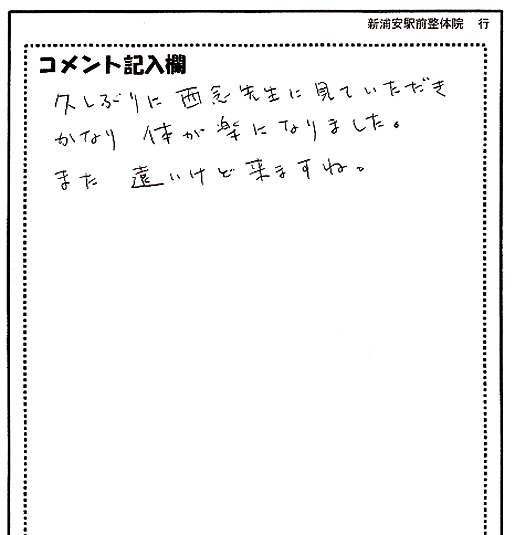 新浦安駅前整体院　行
コメント記入欄
久しぶりに 西念先生に見ていただき
かなり 体が楽になりました。
また 遠いけど来ますね。